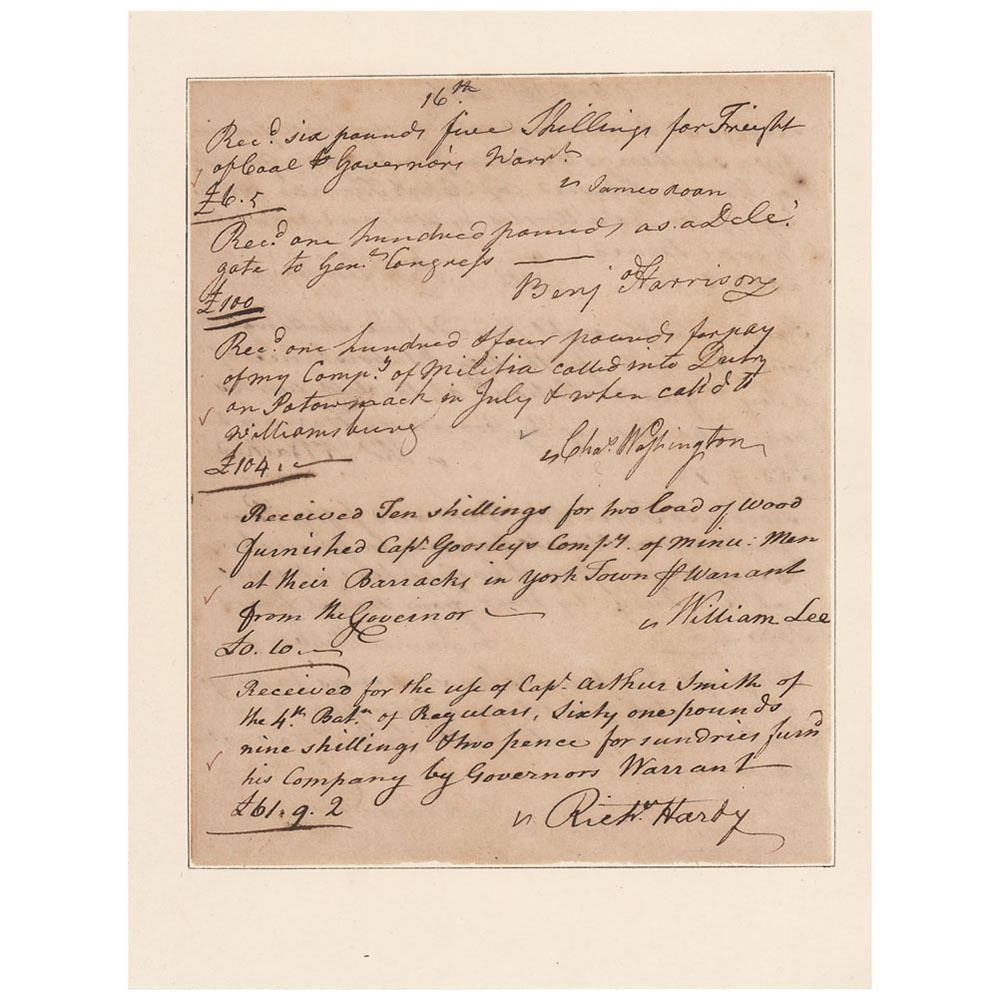 16th
Recd. six pounds five Shillings for Freight
of Coal Governors Warrt.
James Roan
£6.5
Recd. one hundred pounds as a Dele
gate to Genl. Congress
Benj Harrison
£100
Recd. one hundred & four pounds for pay
of my Compy. of Militia called into Duty
on Potowmack in July & when call'd to
Williamsburg
Chas. Washington
£104.
Received Ten shillings for two load of wood
furnished Capt. Goosleys Compy. of minu: Men
at their Barracks in York Town Warrant
from the Governor
William Lee
£0.10
Received for the use of Capt. Arthur Smith of
the 4th. Batn. of Regulars, Sixty one pounds
nine shillings & two pence for sundries furnd
his Company by Governors Warrant
£61.9.2
Richd. Hardy